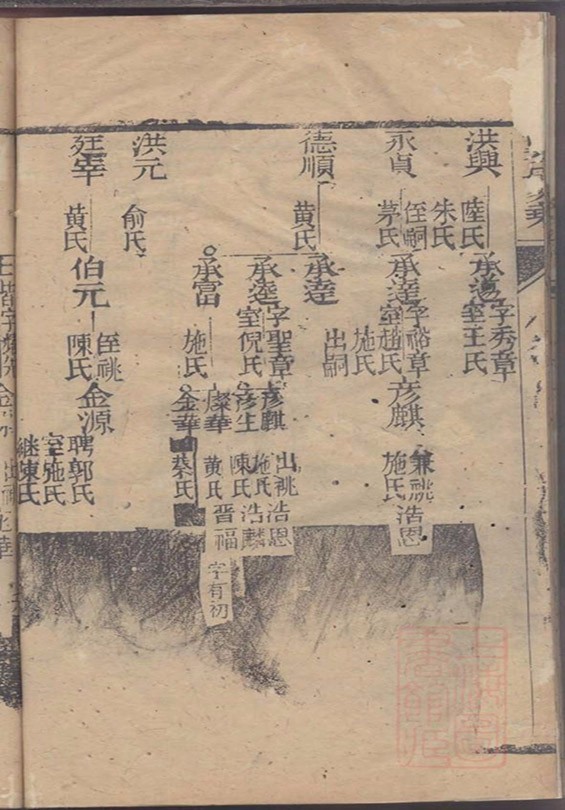 洪興
陸氏
朱氏
承蕩
字秀章
室王氏
永貞
侄嗣
茅氏
承達
字裕章
室趙氏
施氏
彦麒
兼祧
施氏
浩恩
德順
黄氏
承達
出嗣
承逵
字聖章
室倪氏
彦麒
出祧
施氏
浩恩
彦生
陳氏
浩麟
承富
施氏
燦華
黄氏
晋福
字有初
金華
蔡氏
洪元
俞氏
廷宰
黄氏
伯元
侄祧
陳氏
金源
聘郭氏
室施氏
継陳氏